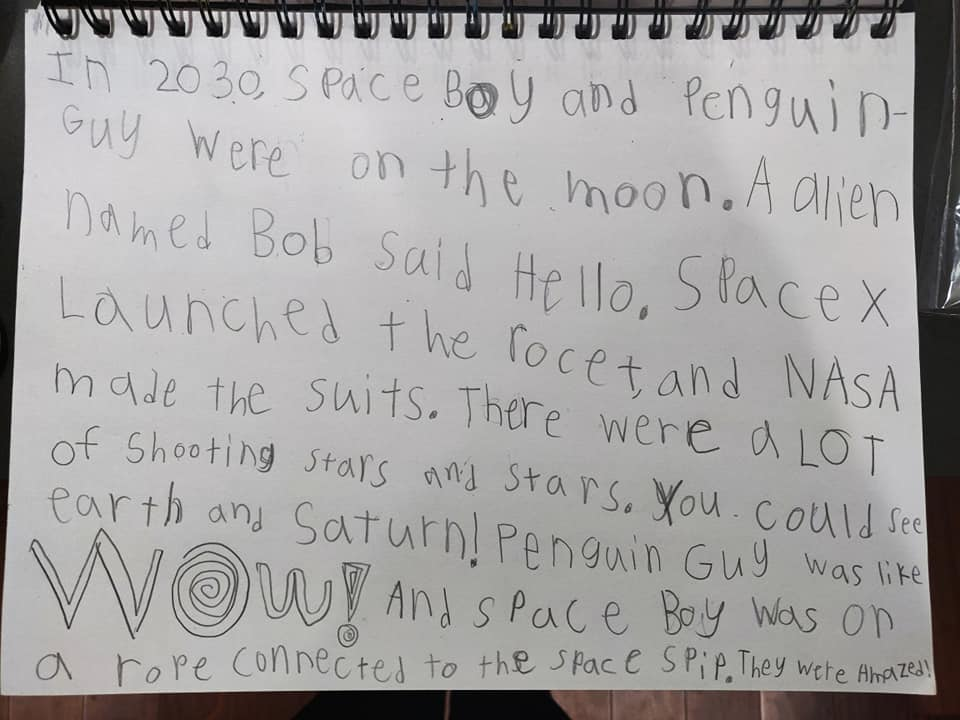 In 2030, Space Boy and Penguin-
Guy were on the moon. A alien
named Bob said Hello. SPacex
Launched the rocet, and NASA
made the suits. There were a LOT
of Shooting stars and stars. You could see
earth and Saturn! Penguin Guy was like
WOw! And sPace Boy was on
a rope connected to the space spip. They were Amazed!